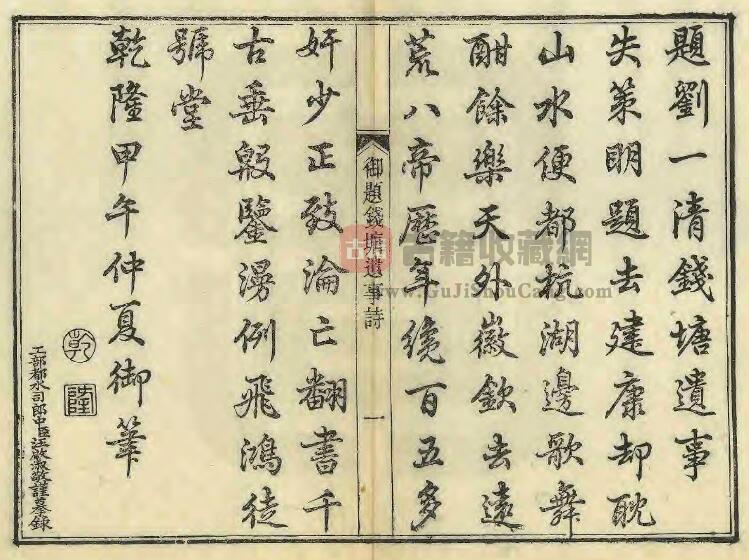 題劉一清錢塘遺事
失策明題去建康却耽
山水便都杭湖邊歌舞
酣餘樂天外徽欽去遠
荒八帝歷年纔百五多
御題錢塘遺事詩
一
奸少正致淪亡翻書千
古垂殷鑒漫例飛鴻徒
號堂
乾隆甲午仲夏御筆
乾
隆
工部都水司郎中臣汪啟淑敬謹摹錄
古籍收藏網
www.GuJiShouCang.com